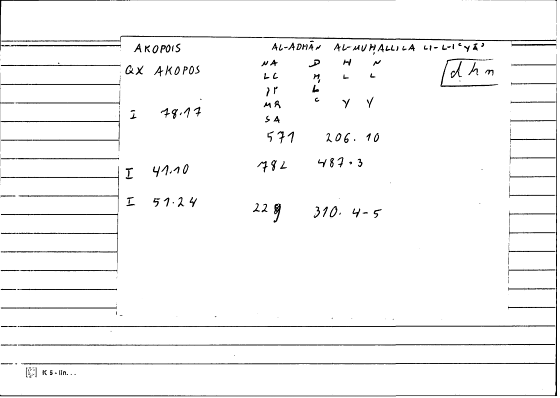 AKOPOIS AL-ADHĀN AL-MUḤALLILA LI-L-IʿYĀʾ
QX AKOPOS NA D H N dhn
LC Ḥ L L
MR C Y Y
I 78.17
SA
571 206. 10
I 41.10 782 487.3
I 51.24 310. 4-5
K 5 - lin...